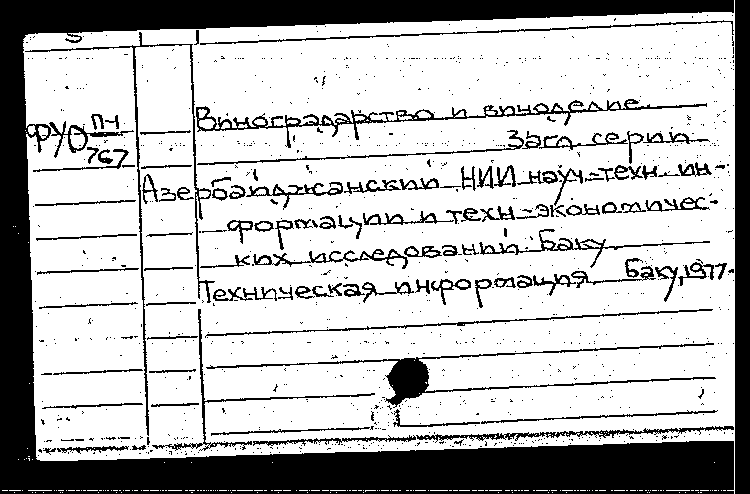 Виноградарство и виноделие.
Загл. серии
ФУО П-1
767
Азербайджанский НИИ науч.-техн. ин-
формации и техн.-экономичес-
ких исследований. Баку.
Техническая информация. Баку, 1977-